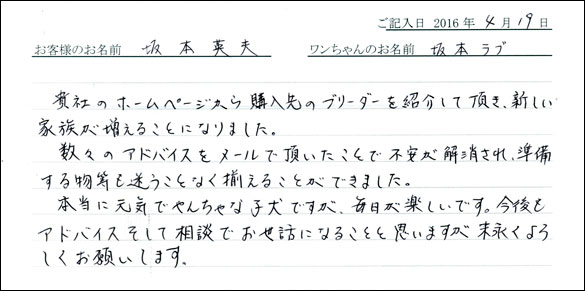 ご記入日 2016年 4月19日
お客様のお名前 坂本英夫 ワンちゃんのお名前 坂本ラブ
貴社のホームページから購入先のブリーダーを紹介して頂き、新しい
家族が増えることになりました。
数々のアドバイスをメールで頂いたことで不安が解消され、準備
する物等も迷うことなく揃えることができました。
本当に元気でやんちゃな子犬ですが、毎日が楽しいです。今後も
アドバイスそして相談でお世話になることと思いますが末永くよろ
しくお願いします。